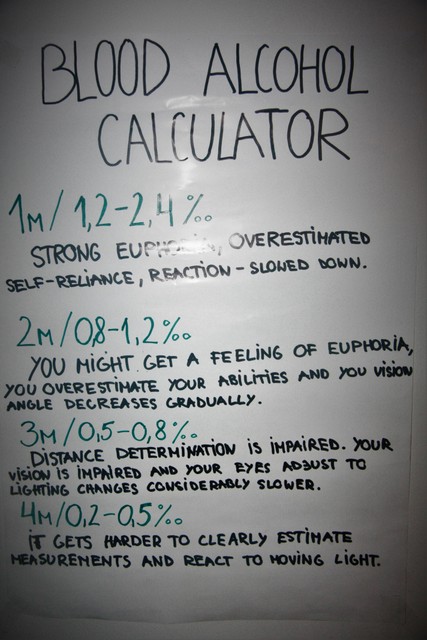 BLOOD ALCOHOL
CALCULATOR
1M/1,2-2,4‰
STRONG EUPHORIA, OVERESTIMATED
SELF-RELIANCE, REACTION - SLOWED DOWN.
2M/0,8-1,2‰
YOU MIGHT GET A FEELING OF EUPHORIA,
YOU OVERESTIMATE YOUR ABILITIES AND YOU VISION
ANGLE DECREASES GRADUALLY.
3M/0,5-0,8‰
DISTANCE DETERMINATION IS IMPAIRED. YOUR
VISION IS IMPAIRED AND YOUR EYES ADJUST TO
LIGHTING CHANGES CONSIDERABLY SLOWER.
4M/0,2-0,5‰
IT GETS HARDER TO CLEARLY ESTIMATE
MEASUREMENTS AND REACT TO MOVING LIGHT.